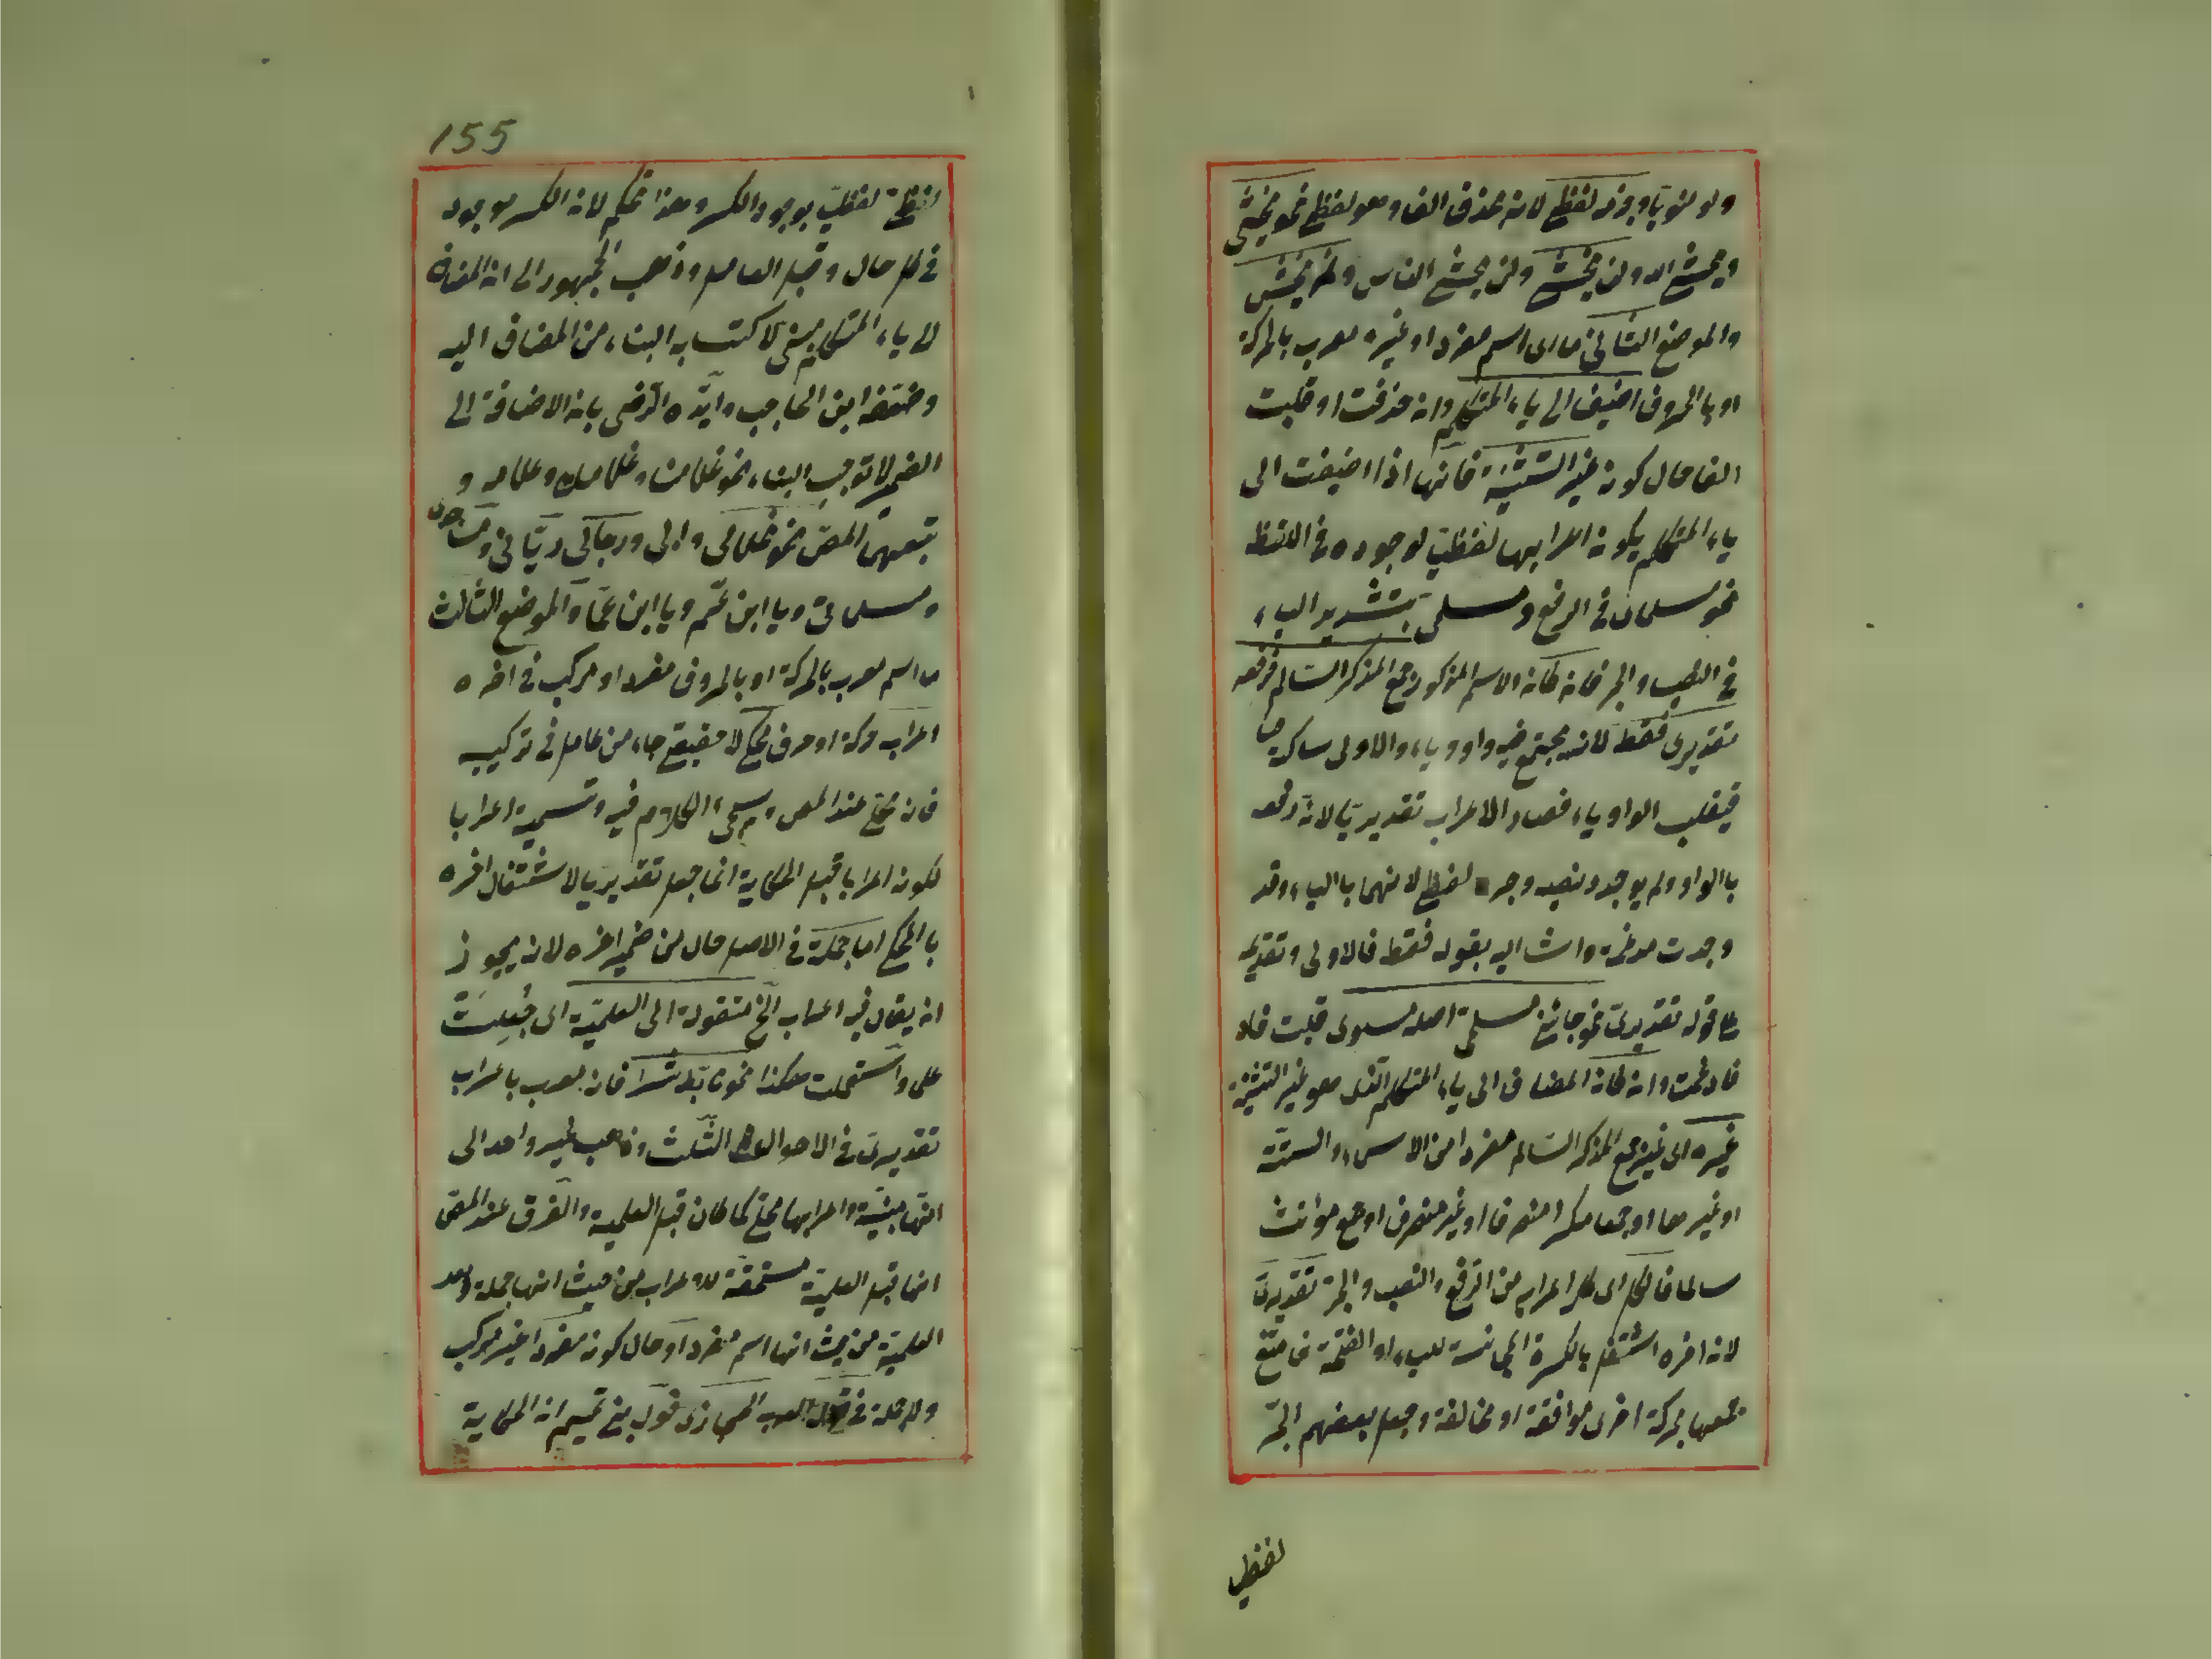 ولو لغويا وجزمه لفظي لانه بحذف الف وهو لفظي نحو يخشى
ويخشى الله ولن يخشى ولن يخشى الناس ولم يخش
والموضع الثاني ما اى اسم مفرد او غيره معرب بالحركة
او بالحروف اضيف الى ياء المتكلم وان حذفت او قلبت
الفا حال كونه غير التثنية فانها اذا اضيفت الى
ياء المتكلم يكون اعرابها لفظيا لوجوده في اللفظ
نحو مسلماى في الرفع ومسلمى بتشديد الياء
في النصب والجر فان كان الاسم المذكور جمع المذكر السالم فرفعه
تقديرى فقط لانه يجتمع فيه واو وياء والاولى ساكنة
فيقلب الواو ياء فصار الاعراب تقديريا لانه رفعه
بالواو ولم يوجد ونصبه وجره لفظي لانهما بالياء وقد
وجدت مدغمة واشا اليه بقوله فقط فالاولى تقديمه
على قوله تقديرى نحو جائنى مسلمى اصله مسلموى قلبت فاد
فادغمت وان كان المضاف الى ياء المتكلم الذى هو غير التثنية
غيره اى غير جمع المذكر السالم مفردا من الاسماء الستة
او غيرها او جمعا مكسرا منصرفا او غير منصرف او جمع مؤنث
سالما فالكل اى كل اعرابه من الرفع والنصب والجر تقديرى
لانه اخره اشتغل بالكسرة المجانسة للياء او الفتحة فامتنع
جمعها بحركة اخرى موافقة او مخالفة وجعل بعضهم الجر
لفظي
155
لفظي لفظيا بوجود الكسر وهذا تحكم لانه الكسر موجود
في كل حال وقبل العامل وذهب الجمهور الى انه المضاف
الى ياء المتكلم مبنى لاكتسابه البناء من المضاف اليه
وضعفه ابن الحاجب وايده الرضى بانه الاضافة الى
الضمير لا توجب البناء نحو غلامنا وغلامك وغلامه و
تبعهما المص نحو غلامى وابى ورجالى
ومسلماتى ويا ابن عم ويا ابن عما والموضع الثالث
ما اسم معرب بالحركة او بالحروف مفرد او مركب في اخره
اعراب حركة او حرف محكى لا حقيقى جاء من عامل في تركيب
فانه محكى عند المص وسيجئ الكلام فيه وتسمية اعرابا
لكونه اعرابا قبل الحكاية انما جعل تقديريا لاشتغال اخره
بالمحكى اما جملة في الاصل حال من ضمير اخره لانه يجوز
انه يقال فيه اعراب الخ منقولة الى العلمية اى جُعِلَتْ
علما واستعملت هكذا نحو تأبط شرا فانه معرب باعراب
تقديرى في الاحوال الثلث وذهب غير واحد الى
انها مبنية واعرابها محكى كما كان قبل العلمية والفرق عند المص
انها قبل العلمية مستحقة للاعراب من حيث انها جملة وبعد
العلمية من حيث انها اسم مفرد او حال كونه مفردا غير مركب
وللجملة في قول العرب الحجازى قول بنى تميم انه الحكاية